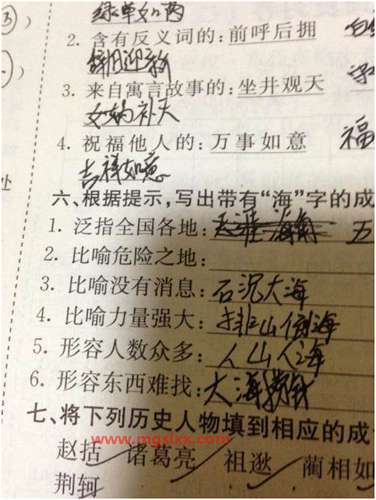 绿草如茵
2. 含有反义词的:前呼后拥
辞旧迎新
3. 来自寓言故事的:坐井观天
女娲补天
4. 祝福他人的:万事如意 福
吉祥如意
处
六、根据提示,写出带有“海”字的成
1. 泛指全国各地: 五
2. 比喻危险之地:
3. 比喻没有消息:石沉大海
4. 比喻力量强大:排山倒海
5. 形容人数众多:人山人海
6. 形容东西难找:大海捞针
七、将下列历史人物填到相应的成
www.mgslxx.com
赵括 诸葛亮 祖逖 蔺相如
荆轲